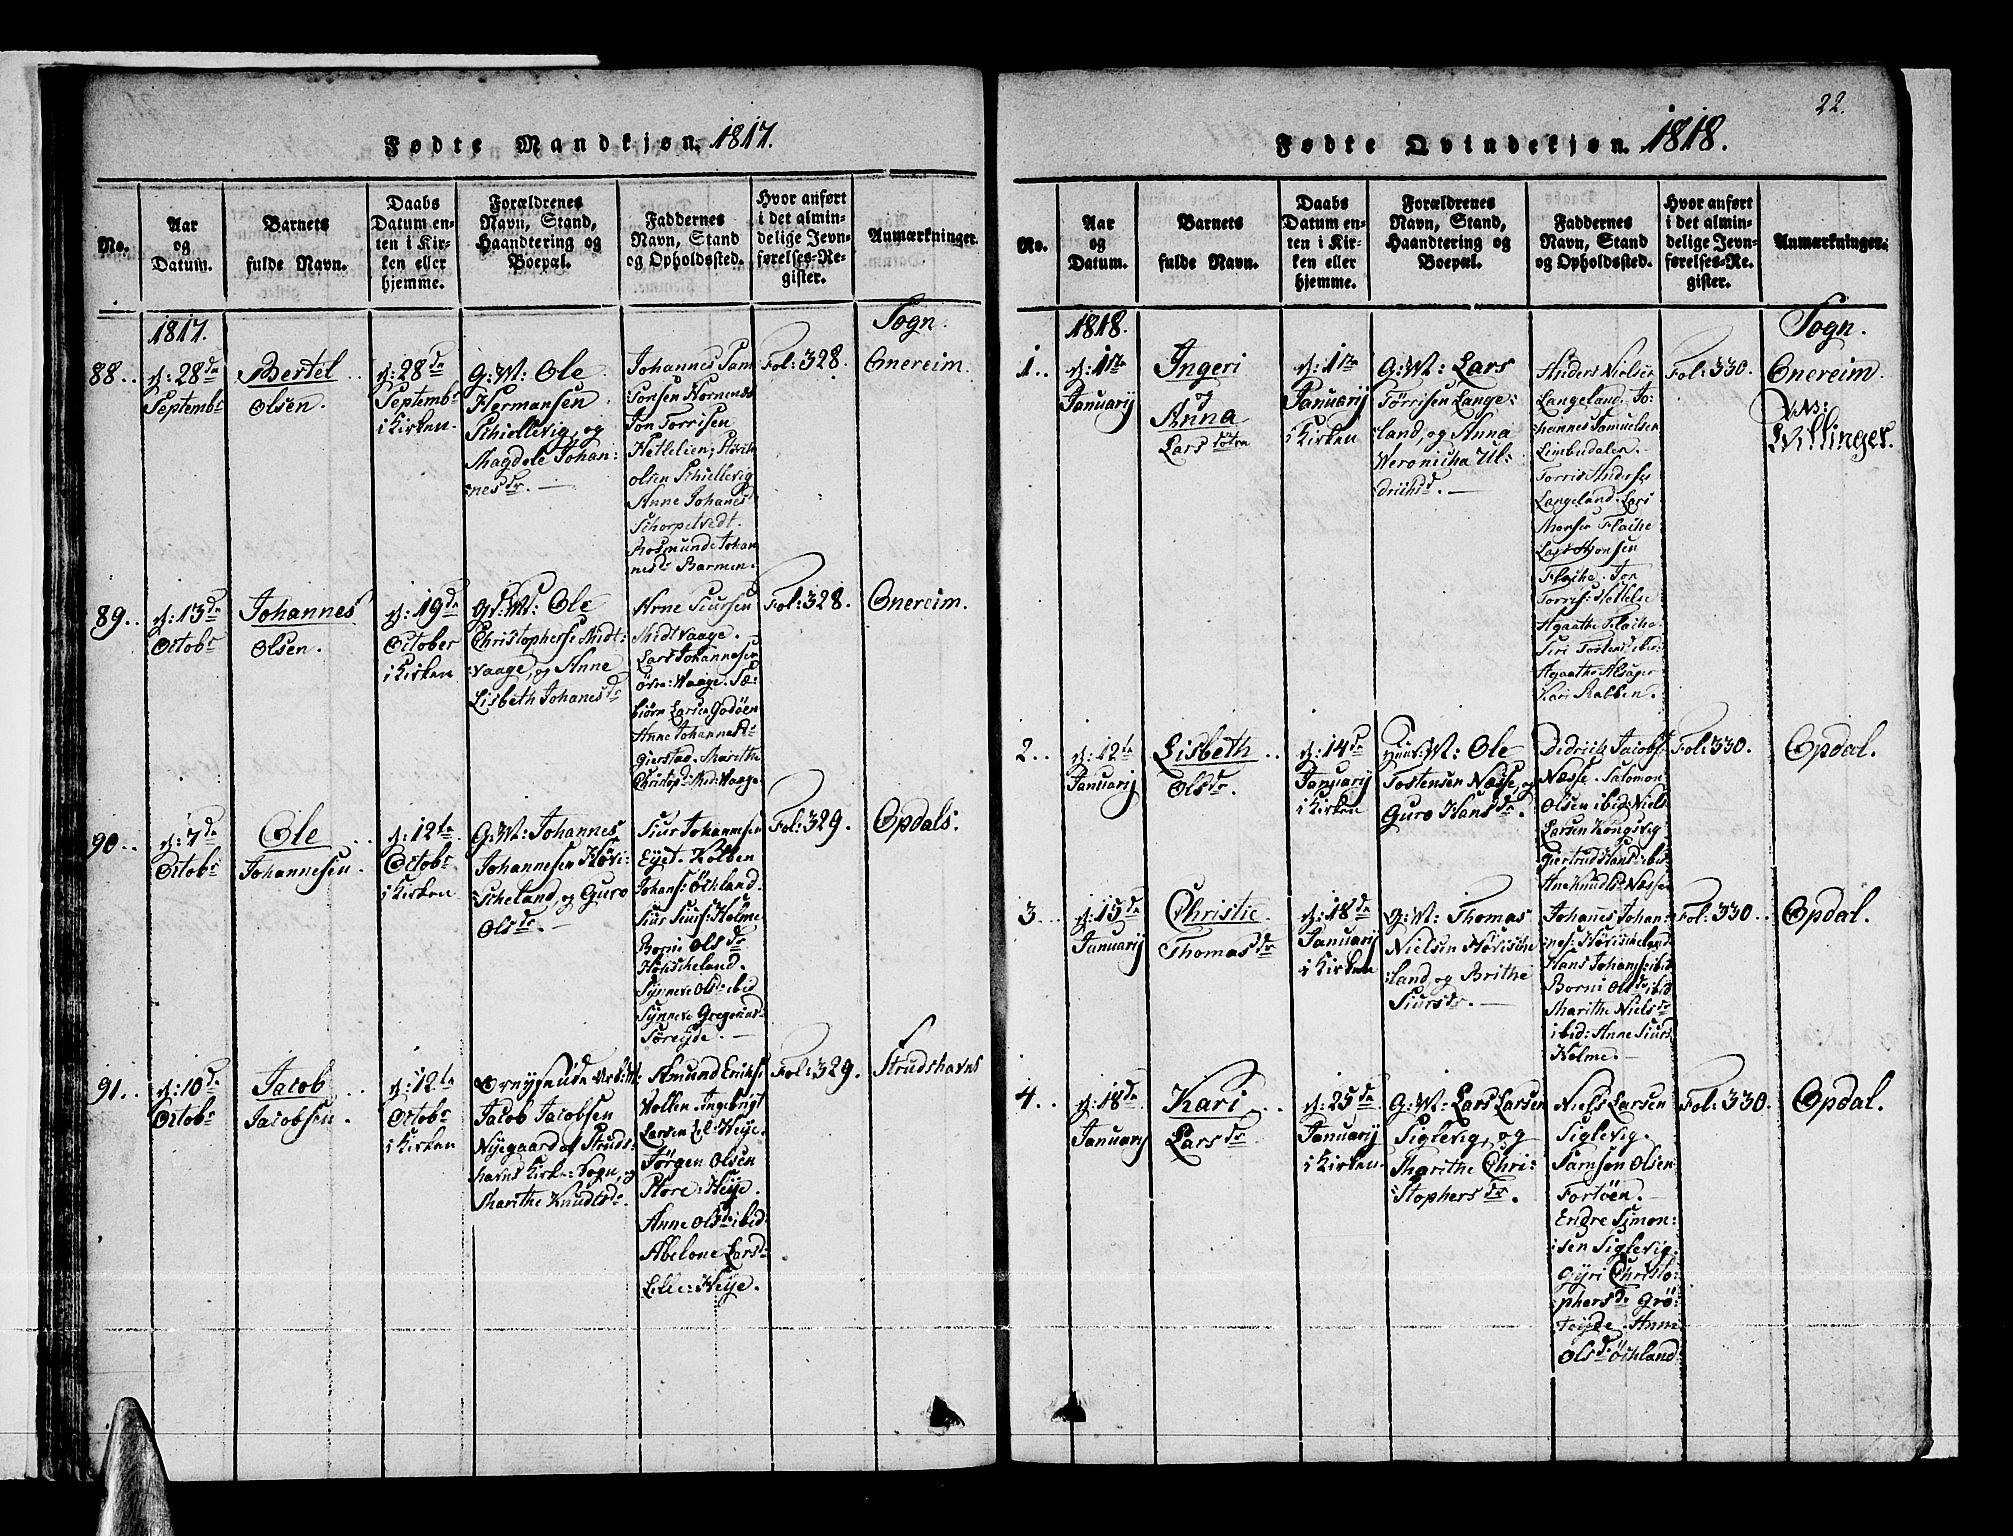 Fødte Mandkjøn. 1817.
No.
Aar
og
Datum.
Barnets
fulde Navn.
Daabs
Datum en-
ten i Kir-
ken eller
hjemme.
Forældrenes
Navn, Stand,
Haandtering og
Boepæl.
Faddernes
Navn, Stand
og Opholdssted.
Hvor anført
i det almin-
delige Jevn-
førelses-Re-
gister.
Anmærkninger.
1817.
Sogn.
88..
d: 28de
Septembr
Bertel
Olsen.
d: 28de
Septembr
i Kirken.
G: M: Ole
Hermansen
Schiellevig, og
Magdele Johan:
:nesdr. —
Johannes Sam
Sonsen
Jon Torrisen
Hetlelien,
Olsen Schiellevig
Anne Johanes
Schorpetvedt.
Rosmunde Johan
nesdr Barmen.
Fol: 328.
Onereim.
89..
d: 13de
Octobr
Johannes
Olsen.
d: 19de
October
i Kirken
G: M: Ole
Christopherse Midt:
:vaage, og Anne
Lisbeth Johanesdr
Arne Siursen
Midtvaage.
Lars Johannesen
Øvre: Vaage. Sæ:
biørn Larsen Godøen
Anne Johannesdr
Gierstad. Marithe
Christop: Mid: Vaage.
Fol: 328.
Onereim.
90..
d: 7de
Octobr
Ole
Johannesen.
d: 12te
Octobr
i Kirken
G: M: Johannes
Johannesen Hövi:
:Scheland, og Guro
Olsdr. —
Siur Johannesen
Eyet. Kolben
Johans: Öchland.
Siur Siurs: Holme
Borni Olsdr
Höwischeland.
Synneve Olsdr ibid
Synneve Gregorius
Søreyde. —
Fol: 329.
Opdals.
91..
d: 10de
Octobr
Jacob
Jacobsen.
d: 12te
Octobr
i Kirken
Jacob Jacobsen
Nyegaard af Struds:
havns Kirke: Sogn, og
Marithe Knudtsdr.
Amund Eriks:
Vollen. Ingebrigt
Larsen L: Heye.
Jörgen Olsen
Store: Heye.
Anne Olsdr ibid.
Abelone Larsdr
Lille: Heye.
Fol: 329.
Strudshavns
22.
Fødte Qvindekjøn. 1818.
No.
Aar
og
Datum.
Barnets
fulde Navn.
Daabs
Datum en-
ten i Kir-
ken eller
hjemme.
Forældrenes
Navn, Stand,
Haandtering og
Boepæl.
Faddernes
Navn, Stand
og Opholdssted.
Hvor anført
i det almin-
delige Jevn-
førelses-Re-
gister.
Anmærkninger.
1818.
Sogn.
1..
d: 1ste
Januarij
Ingeri
Anna
Lars
d: 1ste
Januarij
i Kirken
G: M: Lars
Törrisen Lange:
:land, og Anna
Veronicha Ul:
drichsd. —
Anders Nielsen
Langeland. Jo:
:hannes Samuelsen
Limbudalen.
Torris Anderses
Langeland. Lars
Monsen Flache
Lars Monsen
Flache. Jon
Torris: Hetlelie
Agaathe Flache
Siri Torstens: ibid:
Agaathe Alsager
Kari Rabben.
Fol: 330.
Onereim.
Villinger.
2..
d: 12te
Januarij
Lisbeth
Olsdr.
d: 14de
Januarij
i Kirken
M: Ole
Tostensen Næsse, og
Guro Hansdr.
Didrich Jacobs:
Næsse. Salomon
Olsen ibid. Niels
Larsen Kongsvig
Giertrud Hansd: ibid
Ane Knudtsd. Næsse
Fol: 330.
Opdal.
3..
d: 15de
Januarij
Christie.
Thomasdr
d: 18de
Januarij
i Kirken
G: M: Thomas
Nielsen Hövische
:land, og Brithe
Siursdr. —
Johanes Johan:
nes: Hövischeland
Hans Johans: ibid
Borni Olsdr ibid
Marithe Nielsdr
ibid: Anne Siurs
Holme. —
Fol: 330..
Opdal.
4..
d: 18de
Januarij
Kari
Larsdr.
d: 25de
Januarij
i Kirken.
G: M: Lars Larsen
Siglevig, og
Marithe Chri:
:Stophersdr.
Niels Larsen
Siglevig.
Samson Olsen
Fortöen.
Endre Simon:
:sen Siglevig.
Gyri Christo:
:phersdr Grö:
:teyde. Anne
Olsdr Öchland
Fol: 330.
Opdal.